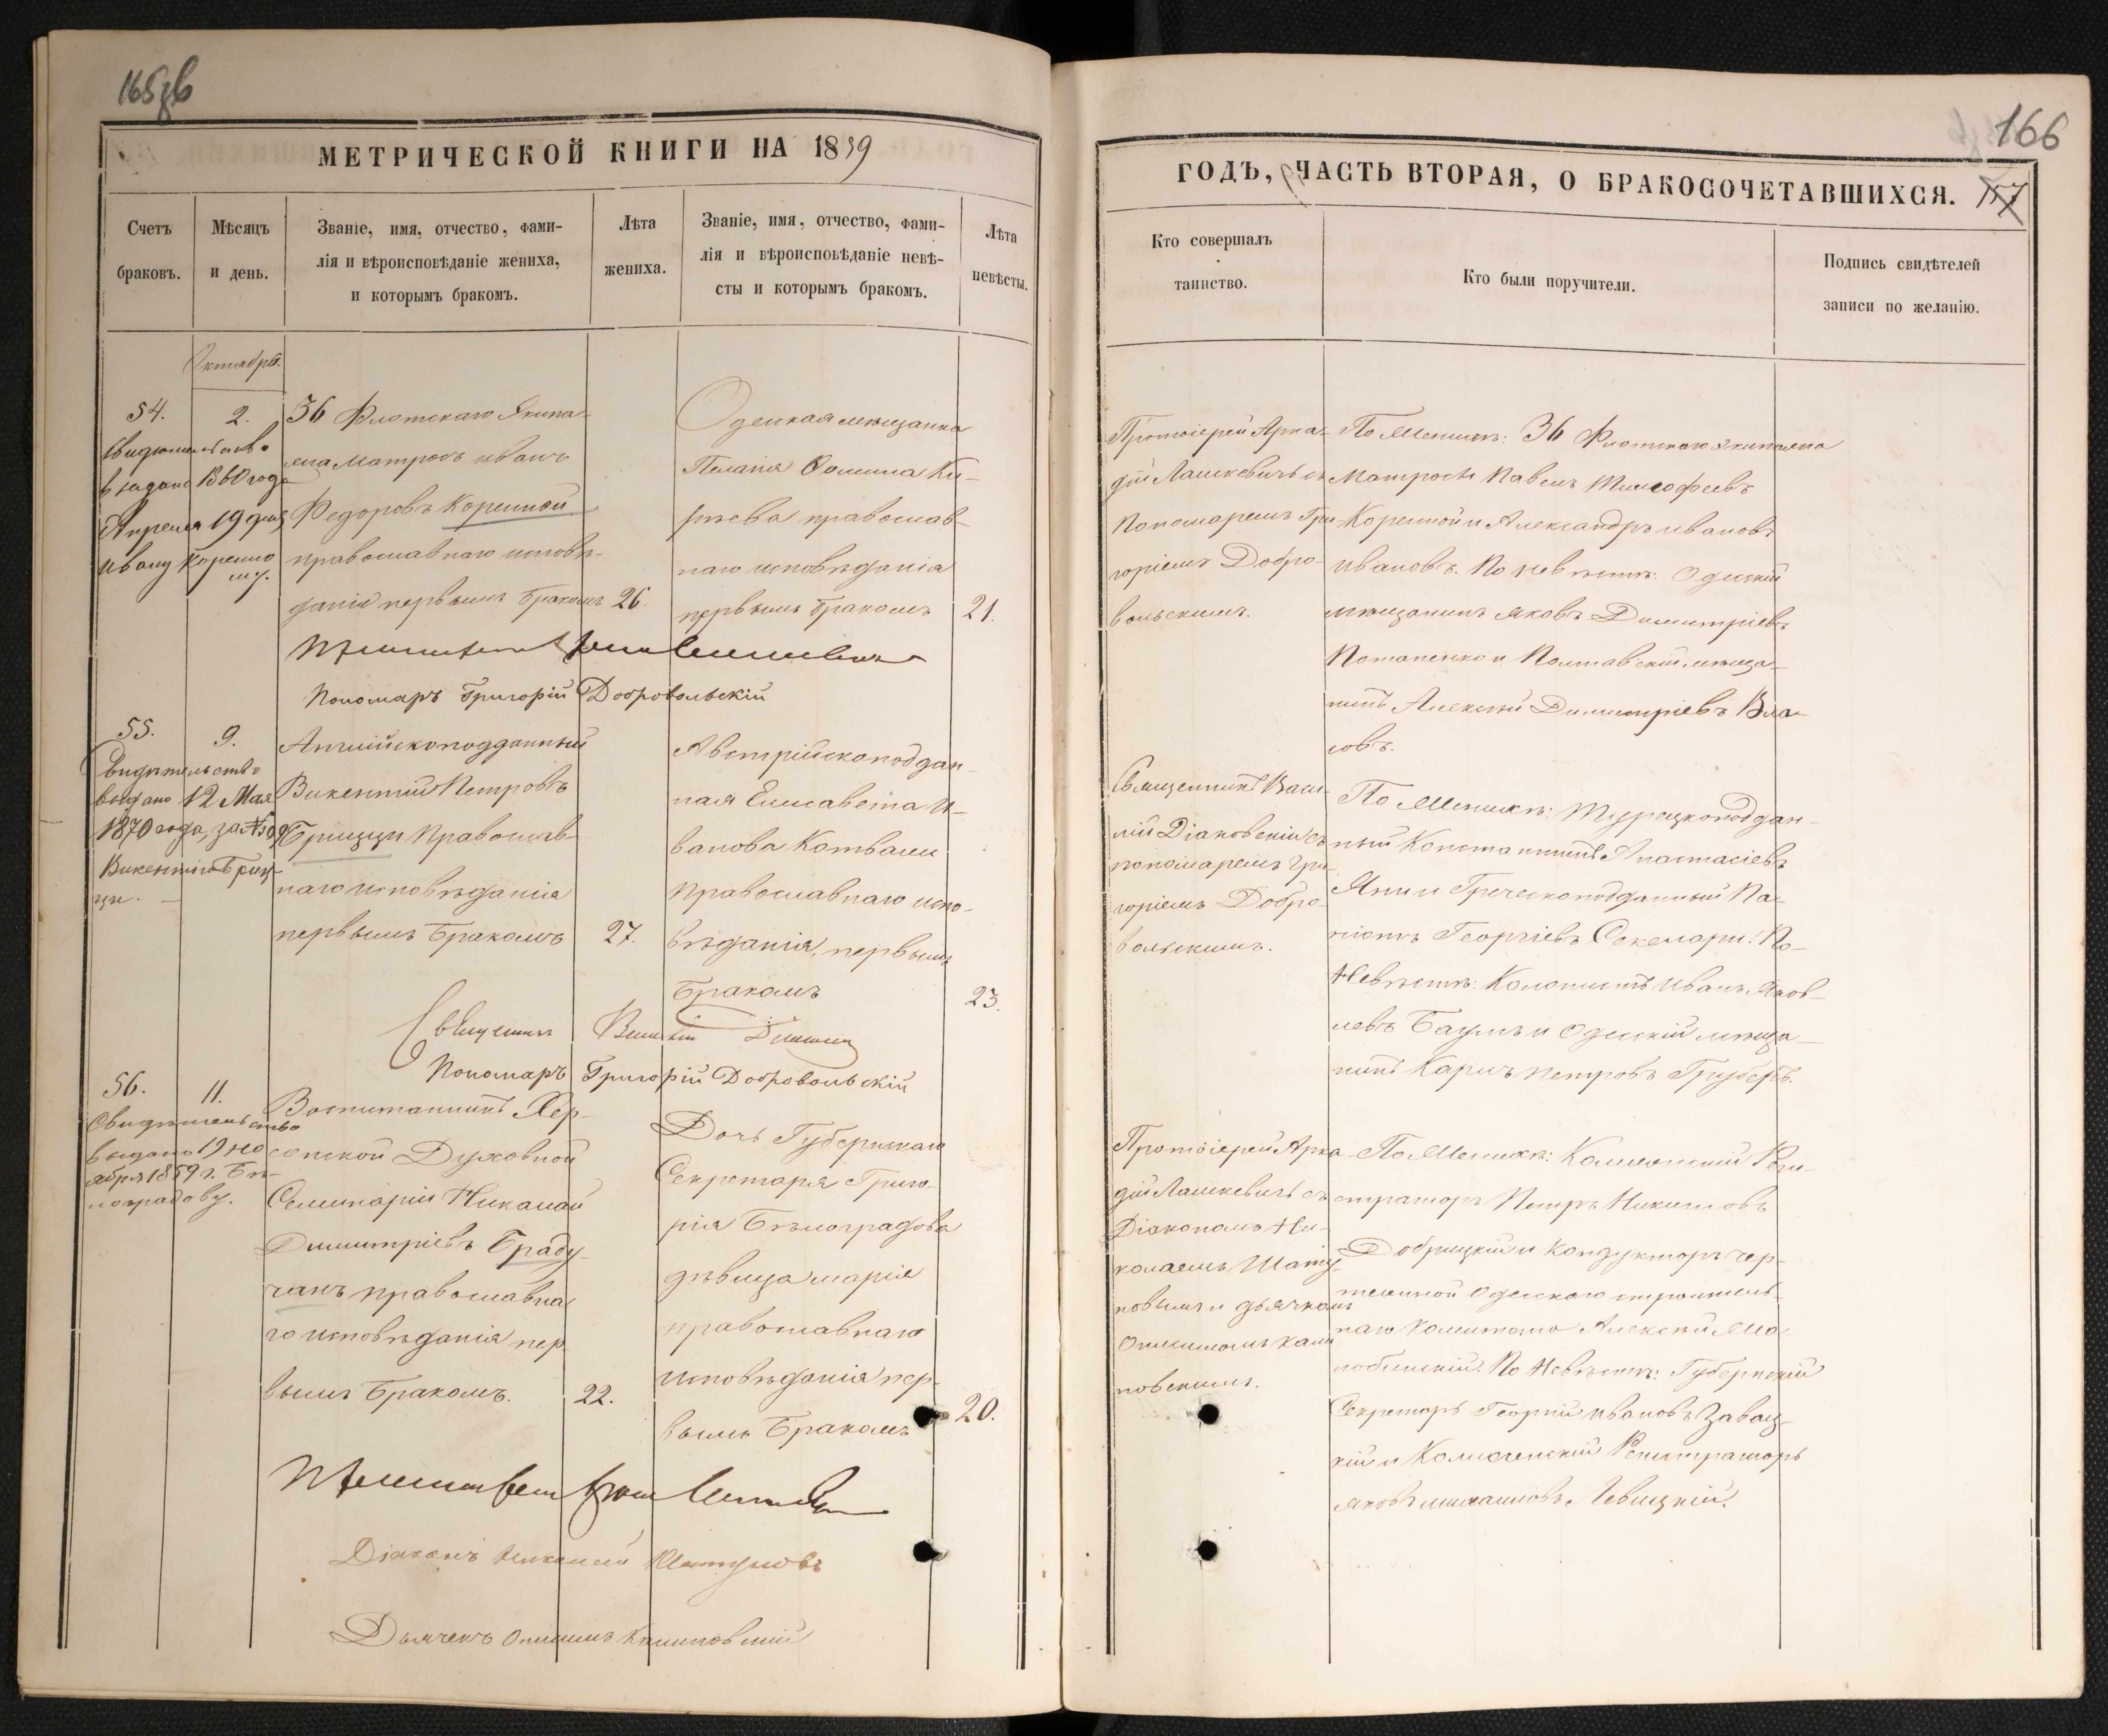 165зв
МЕТРИЧЕСКОЙ КНИГИ НА 1859
Счетъ браковъ.
Мѣсяцъ и день.
Званіе, имя, отчество, фами-
лія и вѣроисповѣданіе жениха,
и которымъ бракомъ.
Лѣта жениха.
Званіе, имя, отчество, фами-
лія и вѣроисповѣданіе невѣ-
сты и которымъ бракомъ.
Лѣта невѣсты.
Октябрь.
54.
Свидѣтельство
выдано 1860 года
Апреля 19 дня
Ивану Коренно
му.
2.
36 Флотскаго Экипа-
жа Матросъ Иванъ
Федоровъ Коренной
православнаго исповѣ-
данія первымъ бракомъ
26.
Одесская мѣщанка
Пелагія Фомина Ки-
рѣева православ-
наго исповѣданія
первымъ бракомъ
21.
Пономарь Григорій Добровольскій
55.
Свидѣтельство
выдано 12 Мая
1870 года, за №
Викентію Гриц-
ци.
9.
Англійскоподданный
Викентій Петровъ
Грицци Православ-
наго исповѣданія
первымъ бракомъ
27.
Австрійскоподдан-
ная Елисавета И-
ванова Котвали
православнаго испо-
вѣданія, первымъ
бракомъ
23.
Священникъ Василій
Пономарь Григорій Добровольскій
56.
Свидѣтельство
выдано 19 но
ября 1859 г. Бѣ-
лоградову.
11.
Воспитанникъ Хер-
сонской Духовной
Семинаріи Николай
Димитріевъ Браду-
чанъ православна
го исповѣданія пер
вымъ бракомъ.
22.
Дочь Губернскаго
Секретаря Григо-
рія Бѣлоградова
дѣвица Марія
православнаго
исповѣданія пер-
вымъ бракомъ
20.
Діаконъ Николай Шатуновъ
Дьячекъ Онисимъ
166
ГОДЪ, ЧАСТЬ ВТОРАЯ, О БРАКОСОЧЕТАВШИХСЯ.
157
Кто совершалъ таинство.
Кто были поручители.
Подпись свидѣтелей
записи по желанію.
Протоіерей Арка-
дій Лашкевичъ съ
Пономаремъ Гри
горіемъ Добро-
вольскимъ.
По Женихѣ: 36 Флотскаго экипажа
Матросы Павелъ Тимофеевъ
Коренной и Александръ Ивановъ
Ивановъ. По невѣстѣ: Одескій
мѣщанинъ Яковъ Димитріевъ
Потапенко и Полтавскій мѣща-
нинъ Алексѣй Димитріевъ Вла-
совъ.
Священникъ Васи-
лій Діаковскій съ
пономаремъ Гри-
горіемъ Добро-
вольскимъ.
По Женихѣ: Турецкоподдан-
ный Константинъ Анастасіевъ
Яни и Греческоподданный Па-
Георгіевъ Секелари. По
Невѣстѣ: Колонистъ Иванъ Яков-
левъ Баумъ и Одесскій мѣща-
нинъ Карлъ Петровъ Груберъ.
Протоіерей Арка
дій Лашкевичъ съ
Діакономъ Ни-
колаемъ Шату-
новымъ и дьячкомъ
Онисимомъ
По Женихѣ: Коллежскій Реги-
страторъ Петръ Никитовъ
Добрицкій и Кондукторъ чер-
тежной Одесскаго строитель-
наго Комитета Алексѣй
По Невѣстѣ: Губернскій
Секретарь Георгій Ивановъ Завад-
кій и Коллежскій Регистраторъ
Яковъ Михаиловъ Левицкій.